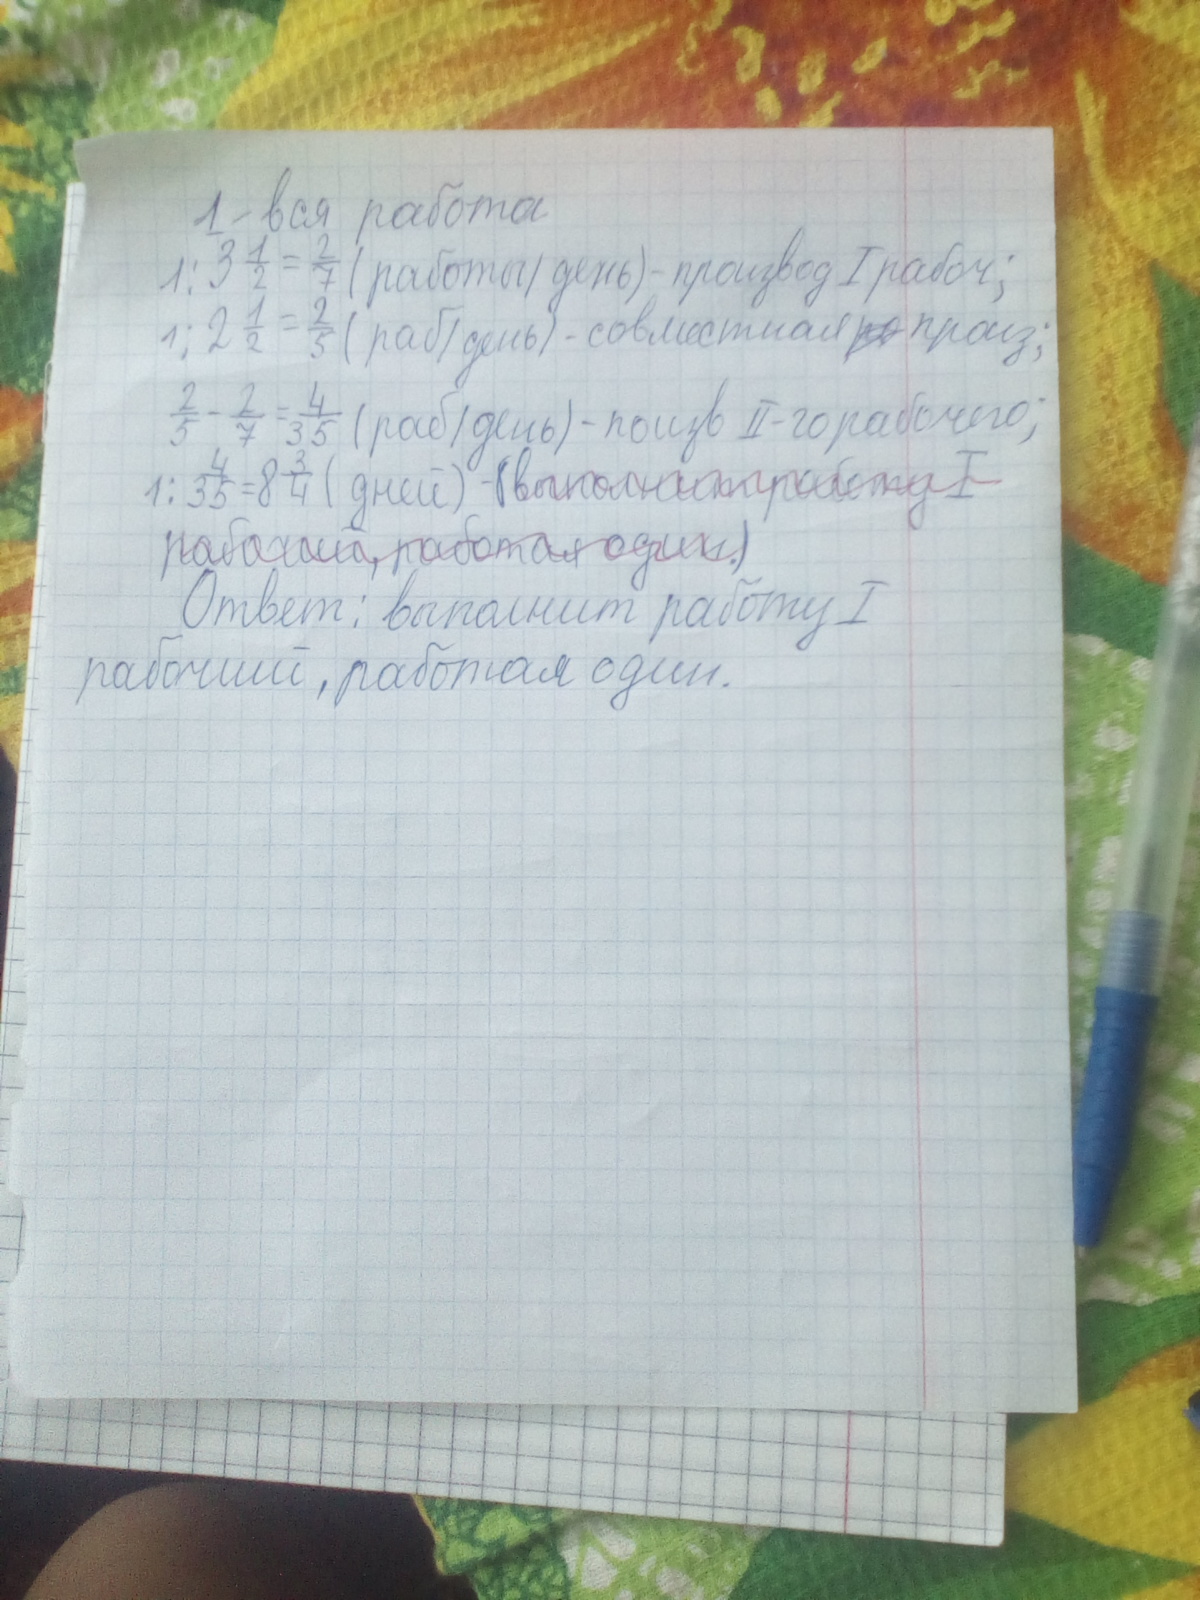 1 - вся работа
1 : 3 1/2 = 2/7 (работы/день) - производ I рабоч;
1 : 2 1/2 = 2/5 (раб/день) - совместная произ;
2/5 - 2/7 = 4/35 (раб/день) - поизв II-го рабочего;
1 : 4/35 = 8 3/4 (дней) - (выполнит работу I
рабочий, работая один.)
Ответ: выполнит работу I
рабочий, работая один.